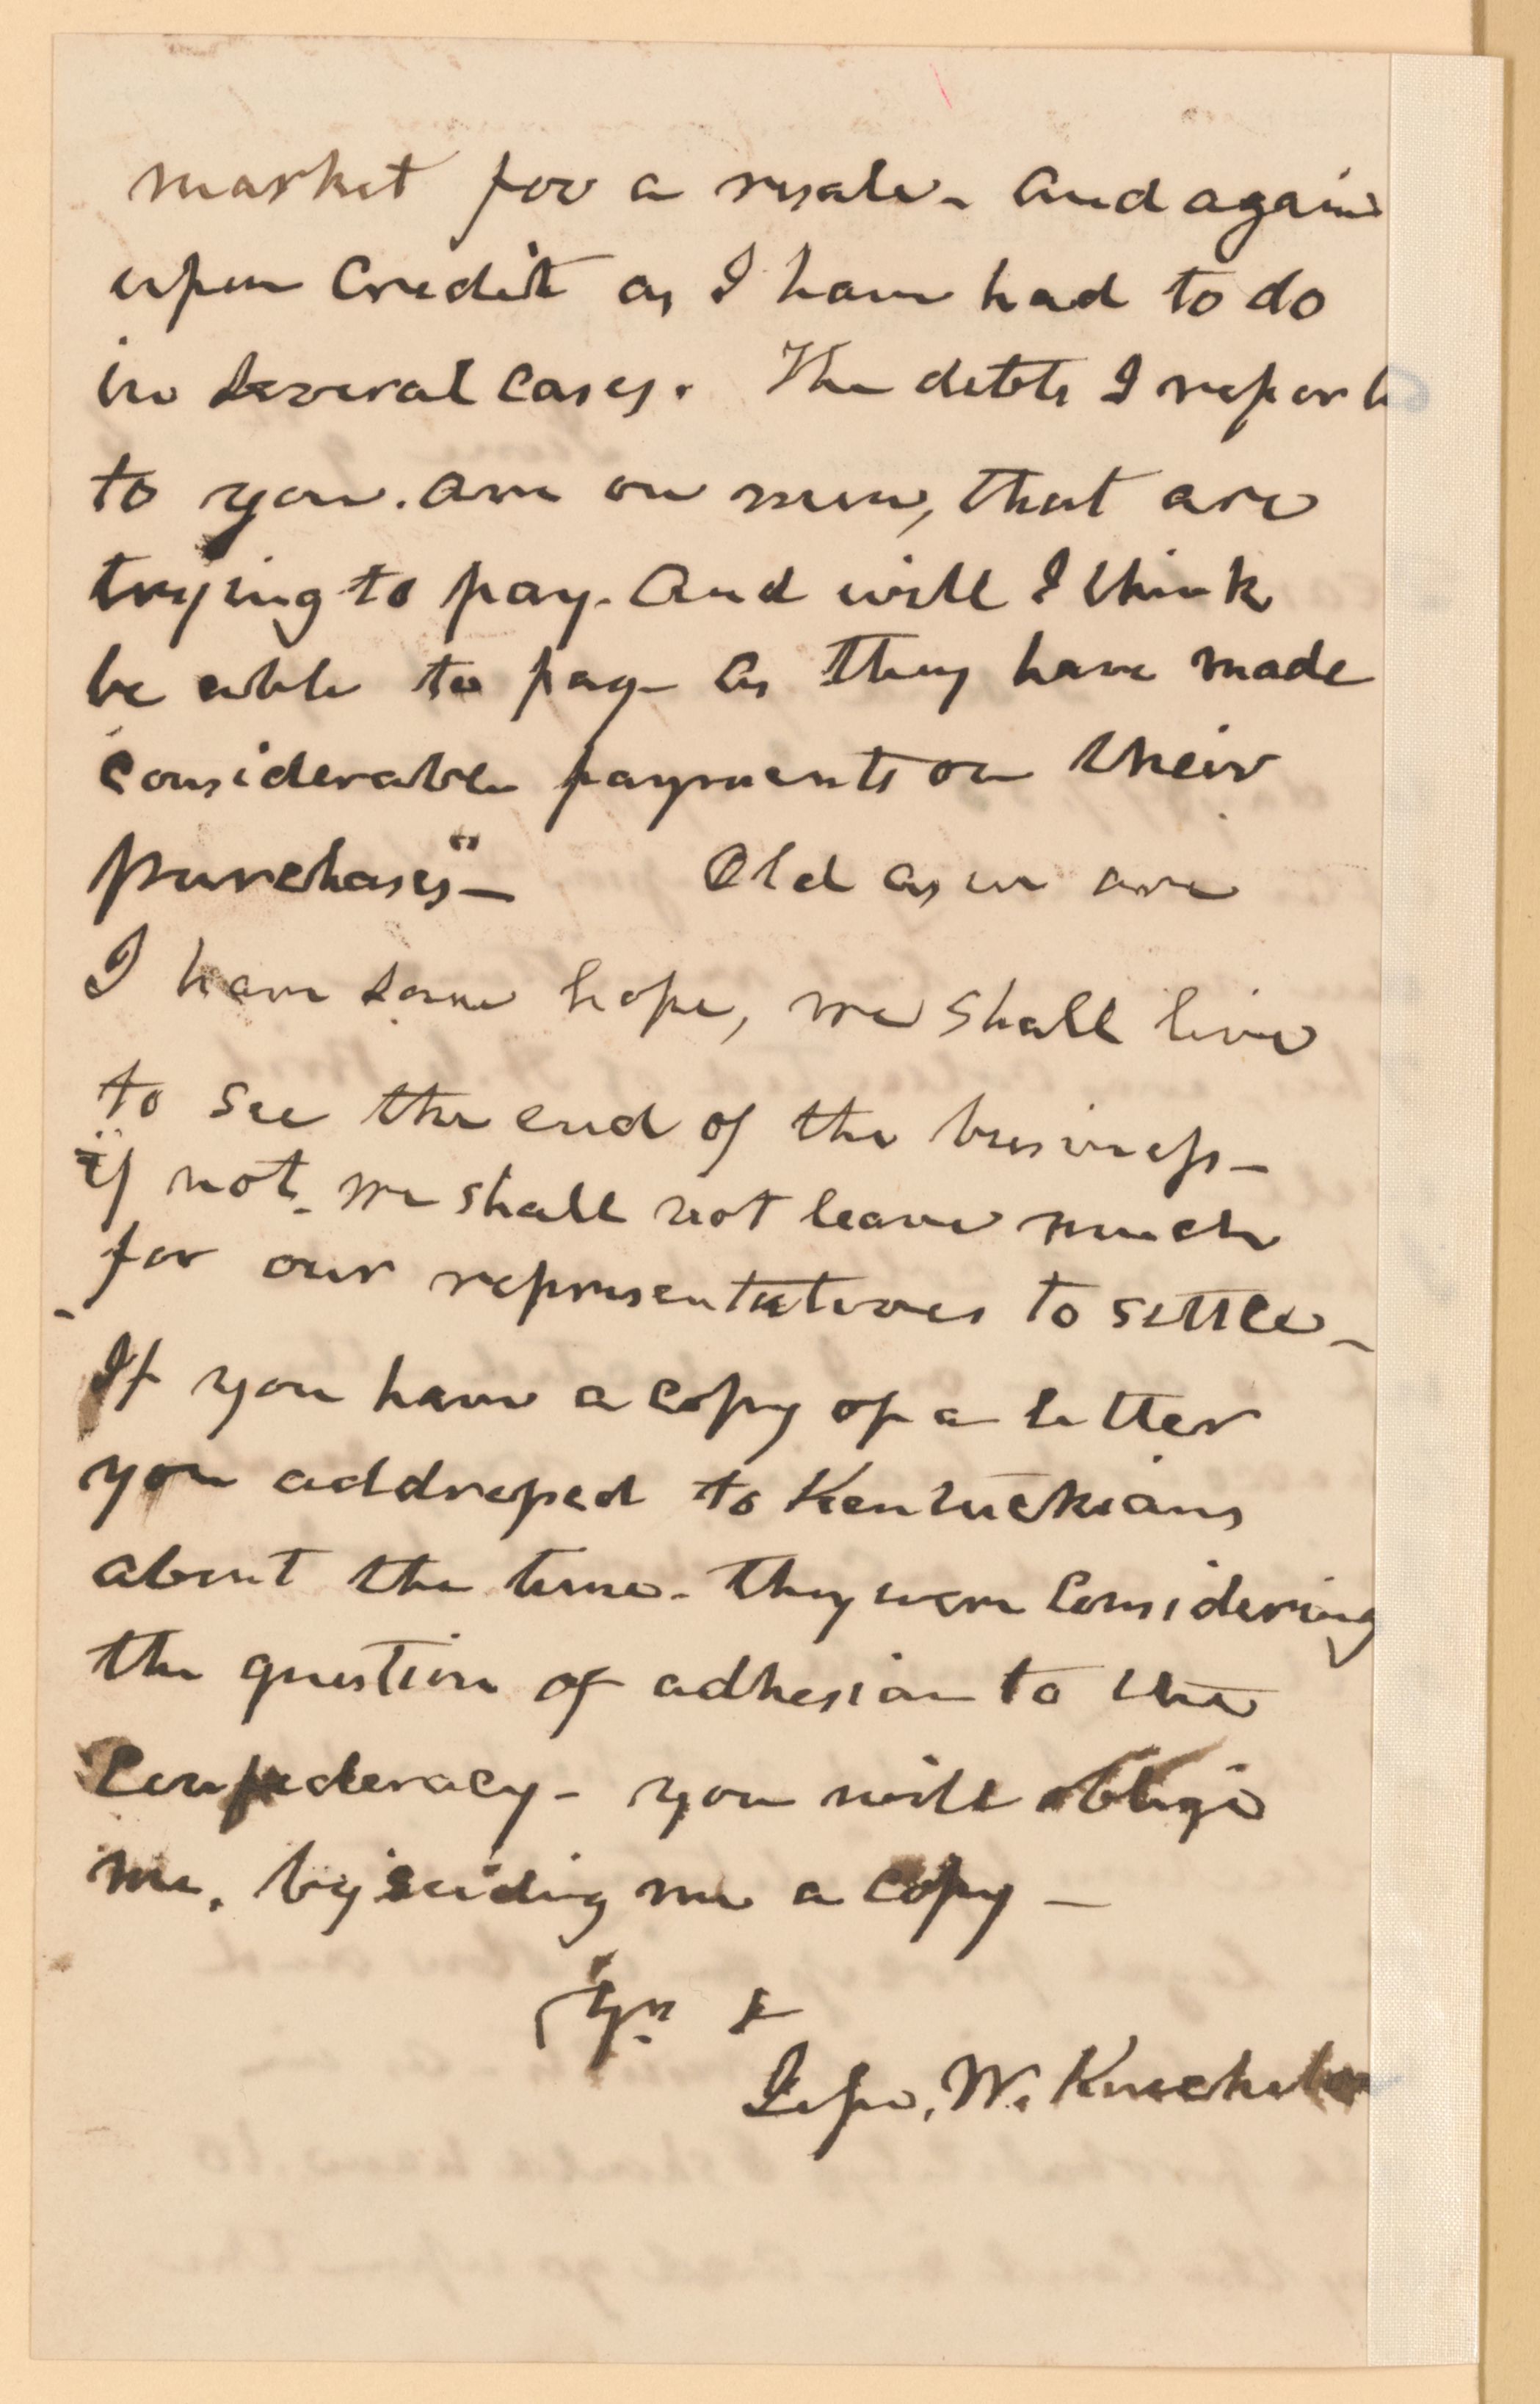 market for a resale - and again
upon Credit as I have had to do
in Several Cases. The debts I report
to you. are on men, that are
trying to pay - and will I think
be able to pay - as they have made
considerable payments on their
purchases" - Old as we are
I have some hope, we shall live
to see the end of the business -
if not - we shall not leave much
for our representatives to settle -
If you have a copy of a letter
you addressed to Kentuckians
about the time - they were Considering
the question of adhesion to the
Confederacy - you will oblige
me, by sending me a copy -
Yrs &
W.